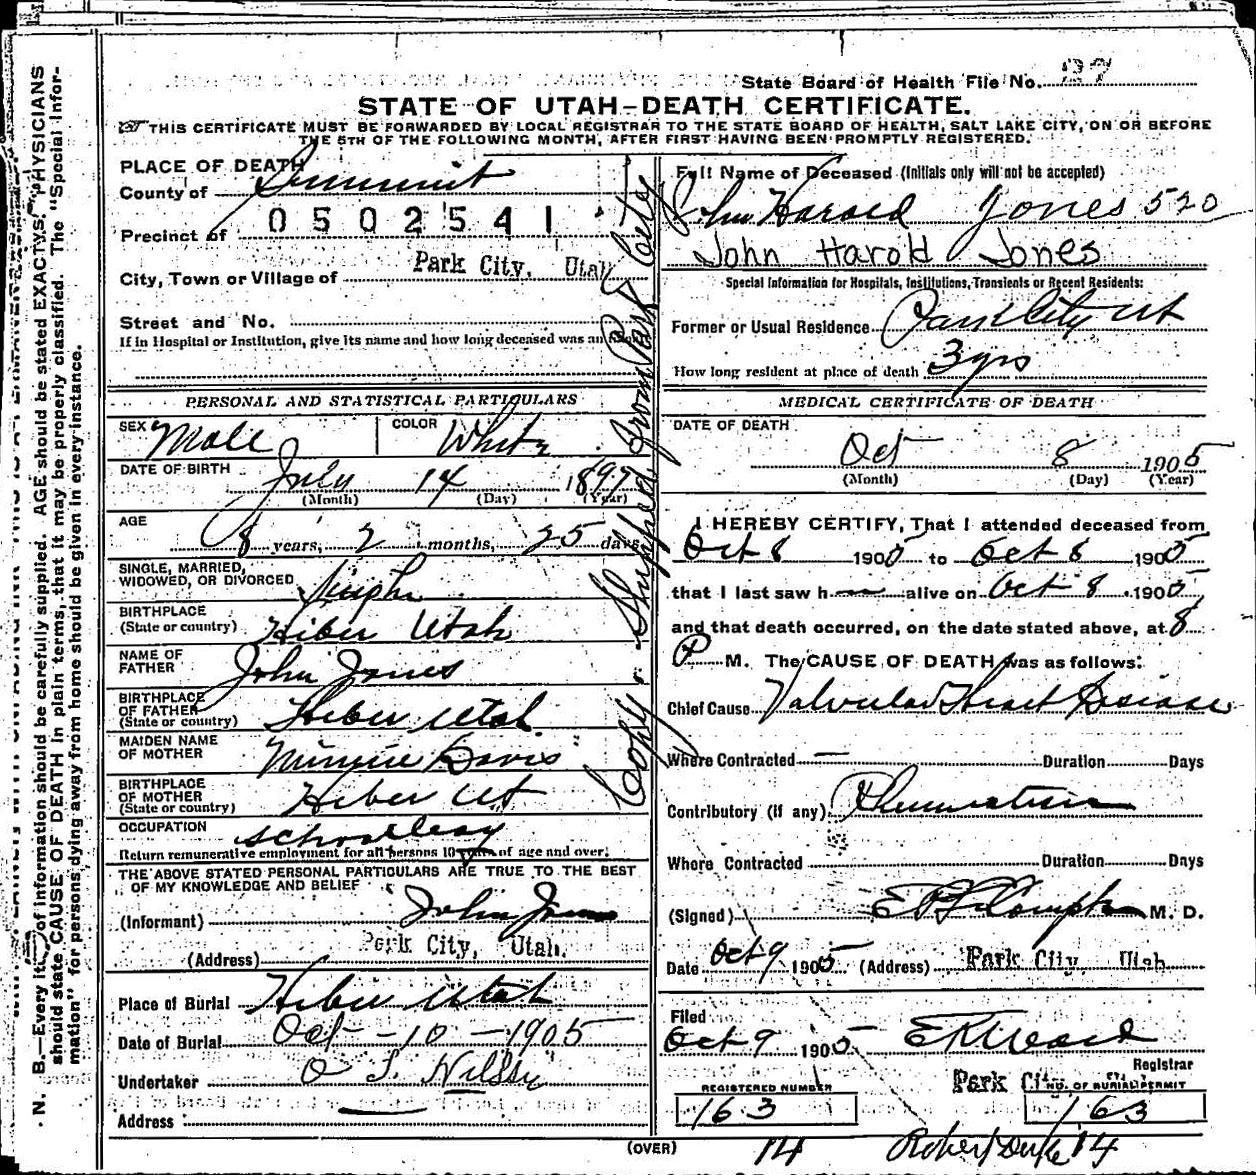 State Board of Health File No. 27
STATE OF UTAH—DEATH CERTIFICATE.
THIS CERTIFICATE MUST BE FORWARDED BY LOCAL REGISTRAR TO THE STATE BOARD OF HEALTH, SALT LAKE CITY, ON OR BEFORE
THE 5TH OF THE FOLLOWING MONTH, AFTER FIRST HAVING BEEN PROMPTLY REGISTERED.
PLACE OF DEATH
County of Summit
0502541
Precinct of
City, Town or Village of Park City, Utah
Street and No.
If in Hospital or Institution, give its name and how long deceased was an
PERSONAL AND STATISTICAL PARTICULARS
SEX Male COLOR White
DATE OF BIRTH July 14 1897
(Month) (Day) (Year)
AGE 8 years, 2 months, 25 days
SINGLE, MARRIED,
WIDOWED, OR DIVORCED Single
BIRTHPLACE
(State or country) Hiber Utah
NAME OF
FATHER John Jones
BIRTHPLACE
OF FATHER
(State or country) Hiber Utah
MAIDEN NAME
OF MOTHER Minnie Davis
BIRTHPLACE
OF MOTHER
(State or country) Hiber Ut
OCCUPATION School boy
Return remunerative employment for all persons 10 years of age and over.
THE ABOVE STATED PERSONAL PARTICULARS ARE TRUE TO THE BEST
OF MY KNOWLEDGE AND BELIEF
(Informant) John Jones
(Address) Park City, Utah.
Place of Burial Hiber Utah
Date of Burial Oct - 10 - 1905
Undertaker O S.
Address
Copy. Shipped from Park City
Full Name of Deceased (Initials only will not be accepted)
John Harold Jones 520
John Harold Jones
Special Information for Hospitals, Institutions, Transients or Recent Residents:
Former or Usual Residence Park City Ut
How long resident at place of death 3 yrs
MEDICAL CERTIFICATE OF DEATH
DATE OF DEATH
Oct 8 1905
(Month) (Day) (Year)
I HEREBY CERTIFY, That I attended deceased from
Oct 8 1905 to Oct 8 1905
that I last saw h— alive on Oct 8 1905
and that death occurred, on the date stated above, at 8
P M. The CAUSE OF DEATH was as follows:
Chief Cause Valvular Heart Disease
Where Contracted — Duration Days
Contributory (if any) Rheumatism
Where Contracted Duration Days
(Signed) M. D.
Date Oct 9 1905 (Address) Park City, Utah
Filed
Oct 9 1905
Registrar
Park City
REGISTERED NUMBER NO. OF BURIAL PERMIT
163 163
(OVER) 14 Robert Duke 14
N. B.—Every item of information should be carefully supplied. AGE should be stated EXACTLY. PHYSICIANS
should state CAUSE OF DEATH in plain terms, that it may be properly classified. The "Special Infor-
mation" for persons dying away from home should be given in every instance.